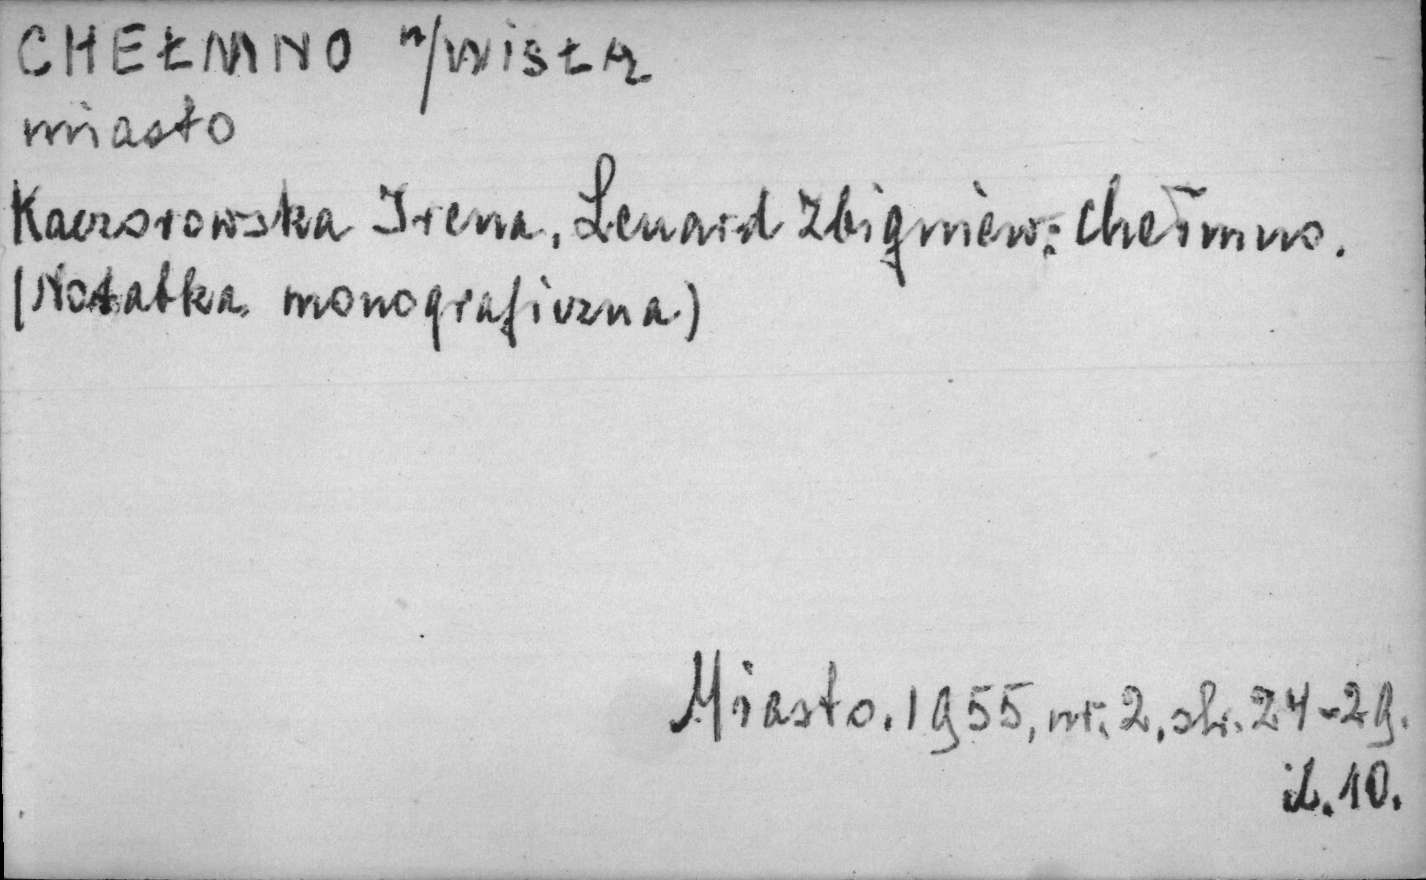 CHEŁMNO n/WISŁĄ
miasto
Kaczorowska Irena, Lenard Zbigniew: Chełmno.
(Notatka monograficzna)
Miasto. 1955, nr. 2, str. 24-29.
il. 10.